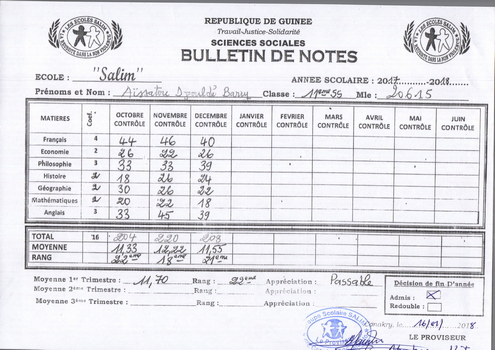 REPUBLIQUE DE GUINEE
Travail-Justice-Solidarité
SCIENCES SOCIALES
BULLETIN DE NOTES
ECOLE : "Salim" ANNEE SCOLAIRE : 2017 2018
Prénoms et Nom : Aïssatou Djouldé Barry Classe : 11ème SS Mle : 20615
MATIERES Coef. OCTOBRE CONTRÔLE NOVEMBRE CONTRÔLE DECEMBRE CONTRÔLE JANVIER CONTRÔLE FEVRIER CONTRÔLE MARS CONTRÔLE AVRIL CONTRÔLE MAI CONTRÔLE JUIN CONTRÔLE
Français 4 44 46 40
Economie 2 26 22 26
Philosophie 3 33 33 39
Histoire 2 18 26 24
Géographie 2 30 26 22
Mathématiques 2 20 22 18
Anglais 3 33 45 39
TOTAL 16 204 220 208
MOYENNE 11,33 12,22 11,55
RANG 22ème 18ème 21ème
Moyenne 1er Trimestre : 11,70 Rang : 22ème Appréciation : Passable
Moyenne 2ème Trimestre : Rang : Appréciation :
Moyenne 3ème Trimestre : Rang : Appréciation :
Décision de fin D'année
Admis : X
Redouble :
Conakry, le 2018
LE PROVISEUR